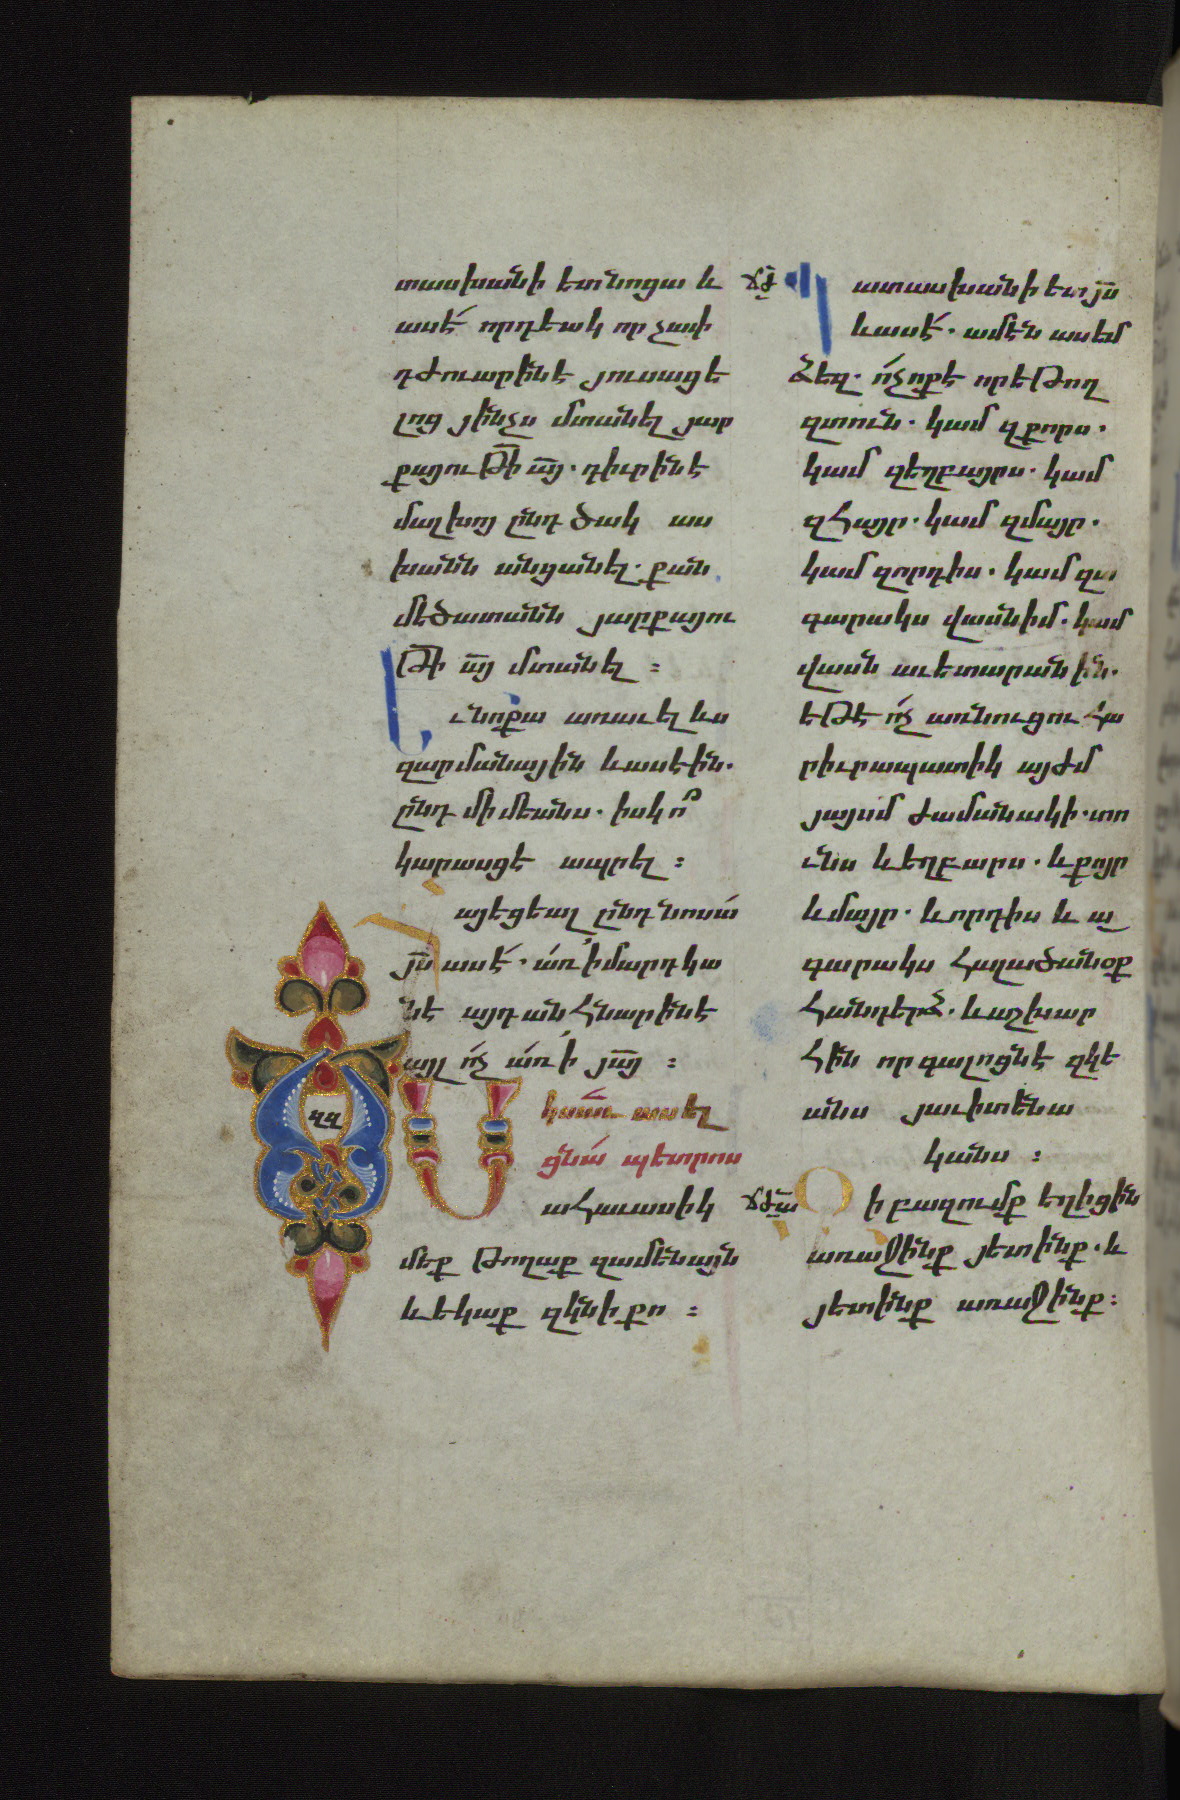 տասխանի ետ նոցա և
ասե՛ որդեակ որչափ
դժուարին է յուսացե
լոց յինչս մտանել յար
քայուԹի ա͞յ. դիւրին է
մալխոյ ընդ ծակ աս
խանն անցանել. քան
մեծատանն յարքայու
Թի ա͞յ մտանել ։
Ւ նոքա առաւել ևս
զարմանային և ասէին.
ընդ միմեանս. իսկ ո՞
կարասցէ ապրել ։
այեցեալ ընդ նոսա՛
յ͞ս ասէ՛. ա՛ռ ՚ի մարդկա
նէ այդ անհնարին է
այլ ո՛չ ա՛ռ ՚ի յա͞յ ։
ՂԴ
Սկսաւ ասել
ցնա՛ պետրոս
ահաւասիկ
մեք Թողաք զամենայն
և եկաք զկնի քո ։
ՃԺ
Պատասխանի ետ յ͞ս
և ասէ՛. ամէն ասեմ
ձեզ. ո՛չ ոք է որ եԹող
զտուն. կամ զքորս.
կամ զեղբայրս. կամ
զհայր. կամ զմայր.
կամ զորդիս. կամ զա
գարակս վասն իմ. կամ
վասն աւետարանին.
եԹէ ո՛չ առնուցու հա
րիւրապատիկ այժմ
յայսմ ժամանակի. տո
ւնս և եղբարս. և քոյր
և մայր. և որդիս և ա
գարակս հալածանօք
հանդերձ. և աշխար
հին որ գալոցն է զկե
անս յաւիտենա
կանս ։
ՃԺա
Ի բազումք եղիցին
առաջինք յետինք. և
յետինք առաջինք։